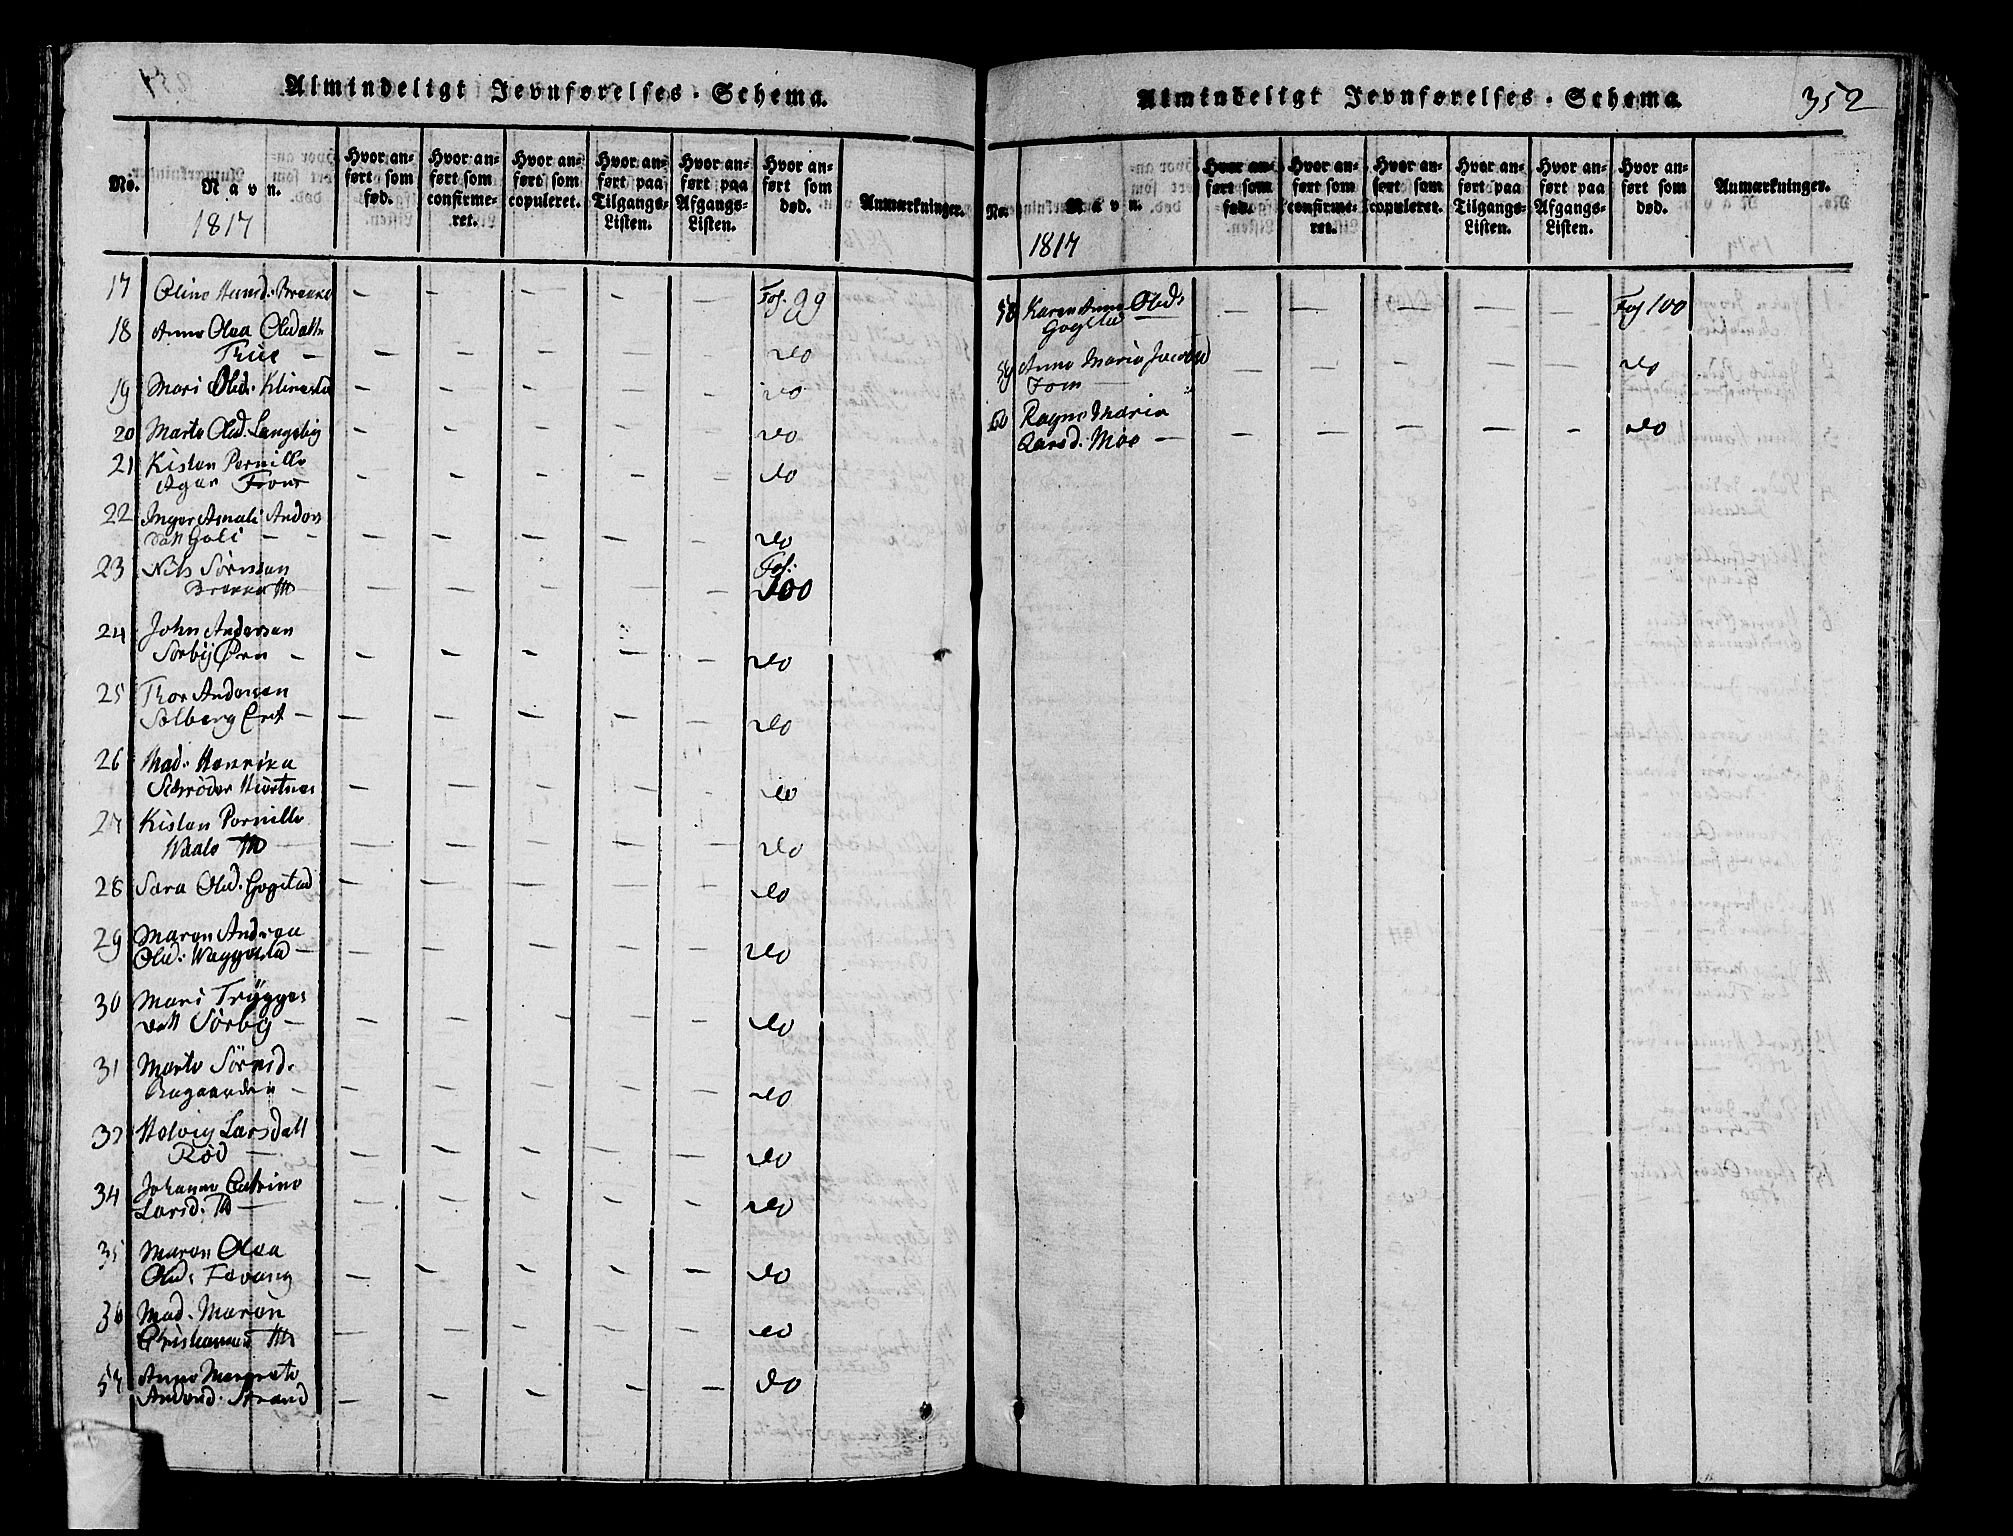 Almindeligt Jevnførelses-Schema.
No.
Navn.
1817
Hvor anført som fød.
Hvor anført som confirmeret.
Hvor anført som copuleret.
Hvor anført paa Tilgangs-Listen.
Hvor anført paa Afgangs-Listen.
Hvor anført som død.
Anmærkninger.
17 Oline Fol: 99
18 Anne Olea Olsdatt.
do
19 Mari Olsd. do
20 Marte Olsd. Langebÿ do
21 Kisten Pernille
do
22 Inger Amali Anders
datt do
23 Nils Sörensen Fol:
100
24 John Andersen
Sörbÿ Øen – do
25 Thor Andersen
Solberg – do
26 Mad. Henrika
Schrøder do
27 Kisten Pernille
do
28 Sara Olsd. Gogstad do
29 Maren Andrea
Olsd: do
30 Mari Trygges
datt Sörbÿ – do
31 Marte Sörensd.
– do
32 Helvig Larsdatt
Röd – do
34 Johanne Catrine
Larsd. do
35 Maren Olea
Olsd: Fevang do
36 Mad. Maren
do
57 Anne Margrete
Andersd. Strand do
Almindeligt Jevnførelses-Schema.
352
No.
Navn.
1817
Hvor anført som fød.
Hvor anført som confirmeret.
Hvor anført som copuleret.
Hvor anført paa Tilgangs-Listen.
Hvor anført paa Afgangs-Listen.
Hvor anført som død.
Anmærkninger.
58 Karen Anne Olsd: Fol 100
Gogstad
59 Anne Maria Jacobsd do
60 Ragne Maria
Larsd. Moe – do